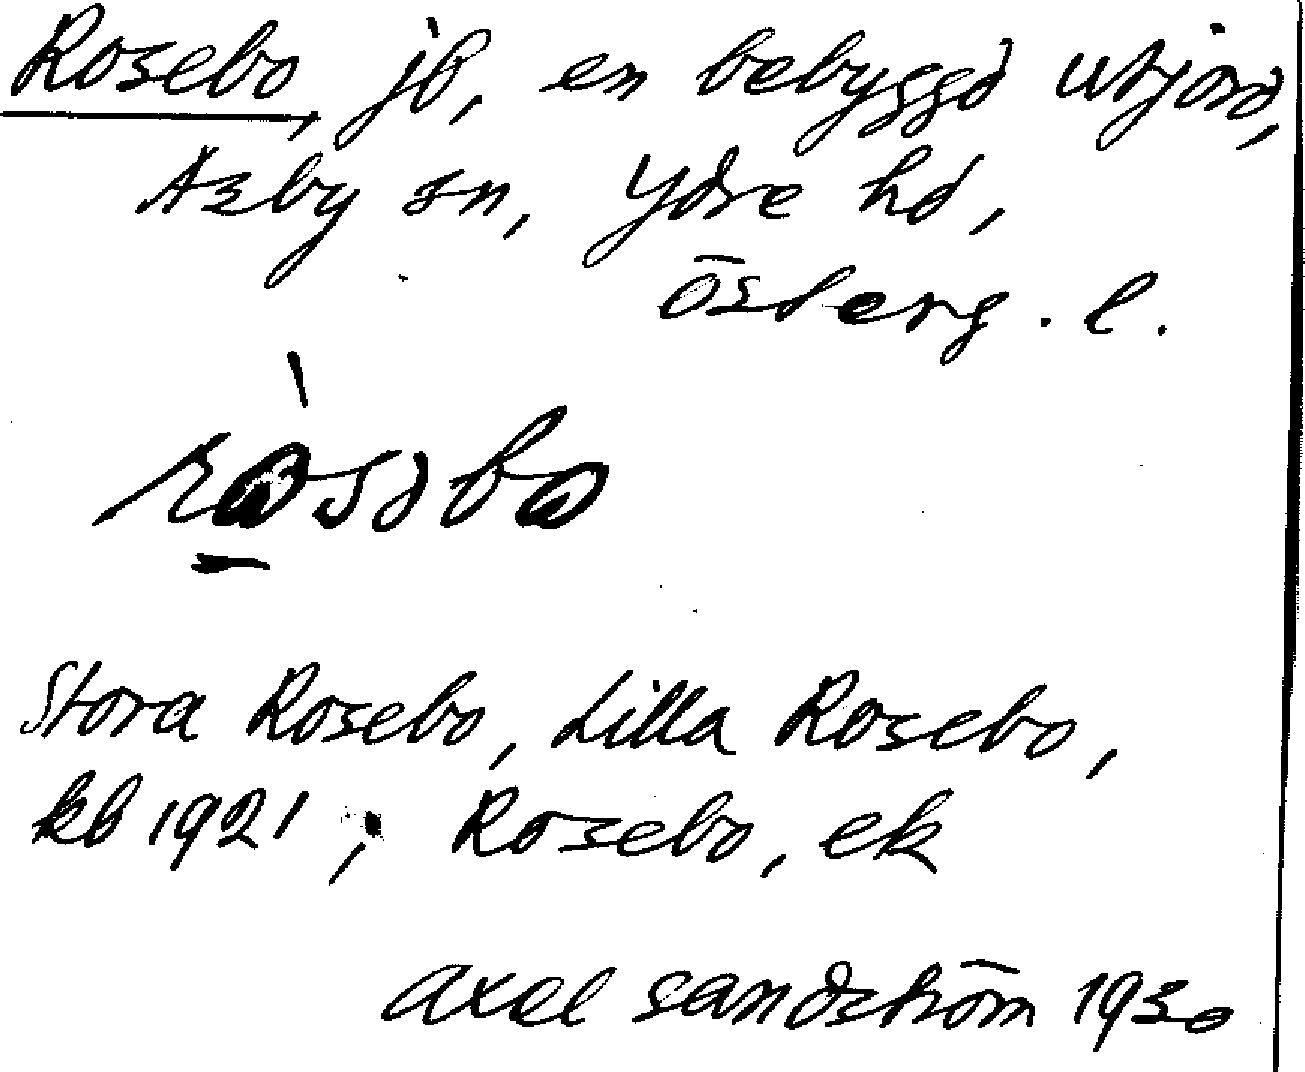 Rosebo, jb, en bebyggd utjord,
Asby sn, Ydre hd,
Österg. l.
Stora Rosebo, Lilla Rosebo,
kb 1921; Rosebo, ek
Axel Sandström 1930